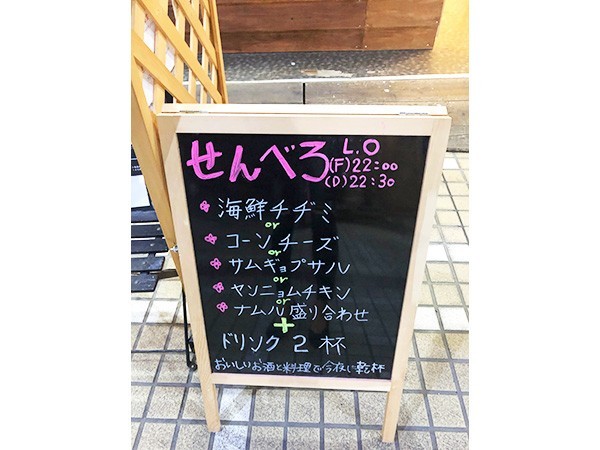 せんべろ
L.O
(F)22:00
(D)22:30
海鮮チヂミ
or
コーンチーズ
or
サムギョプサル
or
ヤンニョムチキン
or
ナムル盛り合わせ
+
ドリンク2杯
おいしいお酒と料理で今夜も乾杯